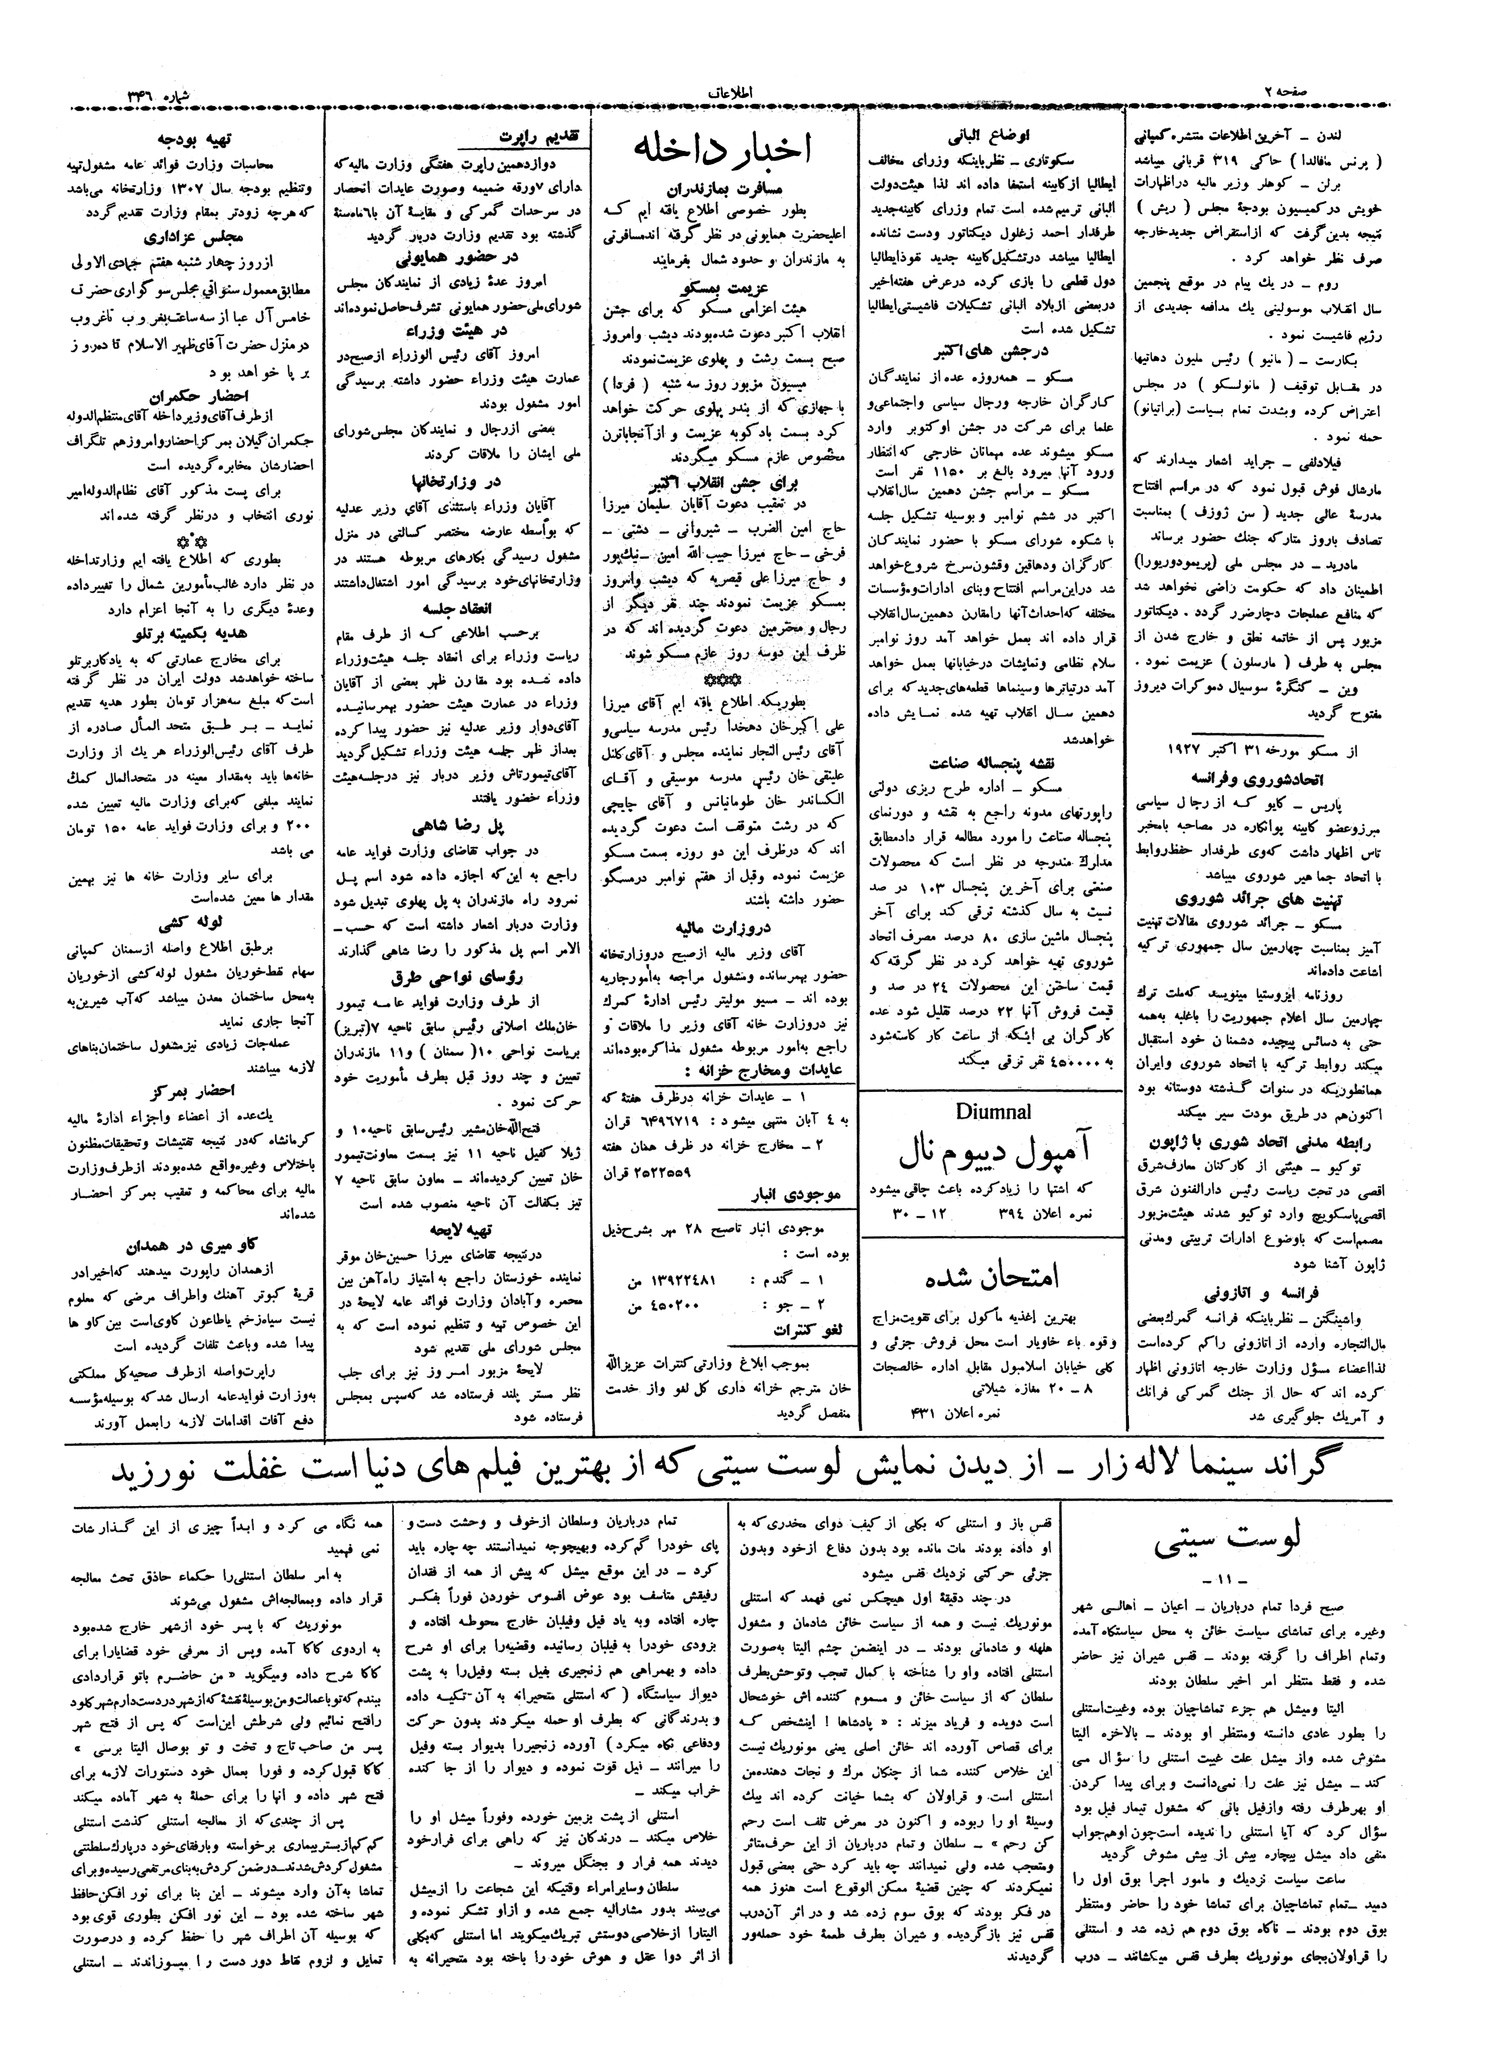 صفحه ۲
اطلاعات
شماره ۳۴۶
لندن ـ آخرین اطلاعات منتشره کمپانی
( پرنس مافالدا ) حاکی ۳۱۹ قربانی میباشد
برلن ـ کوهلر وزیر مالیه دراظهارات
خویش در کمیسیون بودجهٔ مجلس ( ریش )
نتیجه بدین گرفت که ازاستقراض جدیدخارجه
صرف نظر خواهد کرد .
روم ـ در یك پیام در موقع پنجمین
سال انقلاب موسولینی یك مدافعه جدیدی از
رژیم فاشیست نمود .
بکارست ـ ( مانیو ) رئیس ملیون دهاتیها
در مقابل توقیف ( مانولسکو ) در مجلس
اعتراض کرده وبشدت تمام بسیاست (براتیانو)
حمله نمود .
فیلادلفی ـ جراید اشعار میدارند که
مارشال فوش قبول نمود که در مراسم افتتاح
مدرسهٔ عالی جدید ( سن ژوزف ) بمناسبت
تصادف باروز متارکه جنك حضور برساند
مادرید ـ در مجلس ملی (پریمودوریورا)
اطمینان داد که حکومت راضی نخواهد شد
که منافع عملجات دچارضرر گردد . دیکتاتور
مزبور پس از خاتمه نطق و خارج شدن از
مجلس به طرف ( مارسلون ) عزیمت نمود .
وین ـ کنگرهٔ سوسیال دموکرات دیروز
مفتوح گردید
از مسکو مورخه ۳۱ اکتبر ۱۹۲۷
اتحادشوروی وفرانسه
پاریس ـ کایو که از رجال سیاسی
مبرزوعضو کابینه پوانکاره در مصاحبه بامخبر
تاس اظهار داشت که‌وی طرفدار حفظ روابط
با اتحاد جماهیر شوروی میباشد
تهنیت های جرائد شوروی
مسکو ـ جرائد شوروی مقالات تهنیت
آمیز بمناسبت چهارمین سال جمهوری ترکیه
اشاعت داده‌اند
روزنامه ایزوستیا مینویسد که‌ملت ترك
چهارمین سال اعلام جمهوریت را باغلبه به‌همه
حتی به دسائس پیچیده دشمنان خود استقبال
میکند روابط ترکیه با اتحاد شوروی وایران
همانطوریکه در سنوات گذشته دوستانه بود
اکنون‌هم در طریق مودت سیر میکند
رابطه مدنی اتحاد شوری با ژاپون
توکیو ـ هیئتی از کارکنان معارف‌شرق
اقصی در تحت ریاست رئیس دارالفنون شرق
اقصی‌پاسکوویچ وارد توکیو شدند هیئت‌مزبور
مصمم‌است که باوضوع ادارات تربیتی ومدنی
ژاپون آشنا شود
فرانسه و اتازونی
واشینگتن ـ نظرباینکه فرانسه گمرك‌بعضی
مال‌التجاره وارده از اتازونی راکم کرده‌است
لذااعضاء مسؤل وزارت خارجه اتازونی اظهار
کرده اند که حال از جنك گمرکی فرانك
و آمریك جلوگیری شد
اوضاع البانی
سکوتاری ـ نظرباینکه وزرای مخالف
ایطالیا ازکابینه استعفا داده اند لذا هیئت‌دولت
البانی ترمیم‌شده است تمام وزرای کابینه‌جدید
طرفدار احمد زغلول دیکتاتور ودست نشانده
ایطالیا میباشد درتشکیل‌کابینه جدید نفوذایطالیا
دول قطعی را بازی کرده درعرض هفته‌اخیر
دربعضی ازبلاد البانی تشکیلات فاشیستی‌ایطالیا
تشکیل شده است
درجشن های اکتبر
مسکو ـ همه‌روزه عده از نمایندگان
کارگران خارجه ورجال سیاسی واجتماعی‌و
علما برای شرکت در جشن اوکتوبر وارد
مسکو میشوند عده مهمانان خارجی که‌انتظار
ورود آنها میرود بالغ بر ۱۱۵۰ نفر است
مسکو ـ مراسم جشن دهمین سال‌انقلاب
اکتبر در ششم نوامبر وبوسیله تشکیل جلسه
با شکوه شورای مسکو با حضور نمایندگان
کارگران ودهاقین وقشون‌سرخ شروع‌خواهد
شد دراین‌مراسم افتتاح وبنای ادارات‌ومؤسسات
مختلفه که‌احداث‌آنها رامقارن دهمین‌سال‌انقلاب
قرار داده اند بعمل خواهد آمد روز نوامبر
سلام نظامی ونمایشات درخیابانها بعمل خواهد
آمد درتیاترها وسینماها قطعه‌های‌جدید که برای
دهمین سال انقلاب تهیه شده نمایش داده
خواهدشد
نقشه پنجساله صناعت
مسکو ـ اداره طرح ریزی دولتی
راپورتهای مدونه راجع به نقشه و دورنمای
پنجساله صناعت را مورد مطالعه قرار دادمطابق
مدارك مندرجه در نظر است که محصولات
صنعتی برای آخرین پنجسال ۱۰۳ در صد
نسبت به سال گذشته ترقی کند برای آخر
پنجسال ماشین سازی ۸۰ درصد مصرف اتحاد
شوروی تهیه خواهد کرد در نظر گرفته که
قیمت ساختن این محصولات ۲۴ در صد و
قیمت فروش آنها ۲۲ درصد تقلیل شود عده
کارگران بی اینکه از ساعت کار کاسته‌شود
به ۴۵۰۰۰۰ نفر ترقی میکند
Diumnal
آمپول دییوم نال
که اشتها را زیادکرده باعث چاقی میشود
نمره اعلان ۳۹۴   ۱۲ ـ ۳۰
امتحان شده
بهترین اغذیه مأکول برای تقویت‌مزاج
وقوه باء خاویار است محل فروش جزئی و
کلی خیابان اسلامبول مقابل اداره خالصجات
۸ ـ ۲۰ مغازه شیلاتی
نمره اعلان ۴۳۱
اخبار داخله
مسافرت بمازندران
بطور خصوصی اطلاع یافته ایم که
اعلیحضرت همایونی در نظر گرفته اندمسافرتی
به مازندران و حدود شمال بفرمایند
عزیمت بمسکو
هیئت اعزامی مسکو که برای جشن
انقلاب اکتبر دعوت شده‌بودند دیشب وامروز
صبح بسمت رشت و پهلوی عزیمت‌نمودند
میسیون مزبور روز سه شنبه ( فردا )
با جهازی که از بندر پهلوی حرکت خواهد
کرد بسمت بادکوبه عزیمت و ازآنجاباترن
مخصوص عازم مسکو میگردند
برای جشن انقلاب اکتبر
در تعقیب دعوت آقایان سلیمان میرزا
حاج امین الضرب ـ شیروانی ـ دشتی ـ
فرخی ـ حاج میرزا حبیب الله امین ـ نیك‌پور
و حاج میرزا علی قیصریه که دیشب وامروز
بمسکو عزیمت نمودند چند نفر دیگر از
رجال و محترمین دعوت گردیده اند که در
ظرف این دوسه روز عازم مسکو شوند
بطوریکه اطلاع یافته ایم آقای میرزا
علی اکبرخان دهخدا رئیس مدرسه سیاسی‌و
آقای رئیس التجار نماینده مجلس و آقای‌کلنل
علینقی خان رئیس مدرسه موسیقی و آقای
الکساندر خان طومانیانس و آقای چایچی
که در رشت متوقف است دعوت گردیده
اند که درظرف این دو روزه بسمت مسکو
عزیمت نموده وقبل از هفتم نوامبر درمسکو
حضور داشته باشند
دروزارت مالیه
آقای وزیر مالیه ازصبح دروزارتخانه
حضور بهمرسانده ومشغول مراجعه به‌امورجاریه
بوده اند ـ مسیو مولیتر رئیس ادارهٔ کمرك
نیز دروزارت خانه آقای وزیر را ملاقات و
راجع به‌امور مربوطه مشغول مذاکره‌بوده‌اند
عایدات ومخارج خزانه :
۱ ـ عایدات خزانه درظرف هفتهٔ که
به ۴ آبان منتهی میشود : ۶۴۹۶۷۱۹ قران
۲ ـ مخارج خزانه در ظرف همان هفته
۲۵۲۲۵۵۹ قران
موجودی انبار
موجودی انبار تاصبح ۲۸ مهر بشرح‌ذیل
بوده است :
۱ ـ گندم : ۱۳۹۲۲۴۸۱ من
۲ ـ جو : ۴۵۰۲۰۰ من
لغو کنترات
بموجب ابلاغ وزارتی کنترات عزیزالله
خان مترجم خزانه داری کل لغو واز خدمت
منفصل گردید
تقدیم راپرت
دوازدهمین راپرت هفتگی وزارت مالیه‌که
دارای ۷ورقه ضمیمه وصورت عایدات انحصار
در سرحدات گمرکی و مقایسهٔ آن با۶ماه‌سنهٔ
گذشته بود تقدیم وزارت دربار گردید
در حضور همایونی
امروز عدهٔ زیادی از نمایندگان مجلس
شورای‌ملی‌حضور همایونی تشرف‌حاصل‌نموده‌اند
در هیئت وزراء
امروز آقای رئیس الوزراء ازصبح‌در
عمارت هیئت وزراء حضور داشته برسیدگی
امور مشغول بودند
بعضی ازرجال و نمایندگان مجلس‌شورای
ملی ایشان را ملاقات کردند
در وزارتخانها
آقایان وزراء باستثنای آقای وزیر عدلیه
که بواسطه عارضه مختصر کسالتی در منزل
مشغول رسیدگی بکارهای مربوطه هستند در
وزارتخانهای‌خود برسیدگی امور اشتغال‌داشتند
انعقاد جلسه
برحسب اطلاعی که از طرف مقام
ریاست وزراء برای انعقاد جلسه هیئت‌وزراء
داده شده بود مقارن ظهر بعضی از آقایان
وزراء در عمارت هیئت حضور بهمرسانیده
آقای‌دوار وزیر عدلیه نیز حضور پیدا کرده
بعداز ظهر جلسه هیئت وزراء تشکیل‌گردید
آقای‌تیمورتاش وزیر دربار نیز درجلسه‌هیئت
وزراء حضور یافتند
پل رضا شاهی
در جواب تقاضای وزارت فواید عامه
راجع به این‌که اجازه داده شود اسم پل
نمرود راه مازندران به پل پهلوی تبدیل شود
وزارت دربار اشعار داشته است که حسب ـ
الامر اسم پل مذکور را رضا شاهی گذارند
رؤسای نواحی طرق
از طرف وزارت فواید عامه تیمور
خان‌ملك اصلانی رئیس سابق ناحیه ۷(تبریز)
بریاست نواحی ۱۰( سمنان ) و۱۱ مازندران
تعیین و چند روز قبل بطرف مأموریت خود
حرکت نمود .
فتح‌الله‌خان‌مشیر رئیس‌سابق ناحیه۱۰ و
ژیلا کفیل ناحیه ۱۱ نیز بسمت معاونت‌تیمور
خان تعیین گردیده‌اند ـ معاون سابق ناحیه ۷
نیز بکفالت آن ناحیه منصوب شده است
تهیه لایحه
درنتیجه تقاضای میرزا حسین‌خان موقر
نماینده خوزستان راجع به امتیاز راه‌آهن بین
محمره وآبادان وزارت فوائد عامه لایحهٔ در
این خصوص تهیه و تنظیم نموده است که به
مجلس شورای ملی تقدیم شود
لایحهٔ مزبور امروز نیز برای جلب
نظر مستر پلند فرستاده شد که‌سپس بمجلس
فرستاده شود
تهیه بودجه
محاسبات وزارت فوائد عامه مشغول‌تهیه
وتنظیم بودجه سال ۱۳۰۷ وزارتخانه می‌باشد
که‌هرچه زودتر بمقام وزارت تقدیم گردد
مجلس عزاداری
ازروز چهار شنبه هفتم جمادی الاولی
مطابق معمول سنواتی مجلس سوگواری حضرت
خامس آل عبا از سه ساعت بغروب تاغروب
درمنزل حضرت آقای ظهیر الاسلام تا ده روز
برپا خواهد بود
احضار حکمران
ازطرف‌آقای‌وزیرداخله آقای‌منتظم‌الدوله
حکمران‌گیلان بمرکز احضار وامروزهم تلگراف
احضارشان مخابره‌گردیده است
برای پست مذکور آقای نظام‌الدوله‌امیر
نوری انتخاب و درنظر گرفته شده‌اند
بطوری که اطلاع یافته ایم وزارتداخله
در نظر دارد غالب‌مأمورین شمال را تغییرداده
وعدهٔ دیگری را به آنجا اعزام دارد
هدیه بکمیته برتلو
برای مخارج عمارتی که به یادکاربرتلو
ساخته خواهدشد دولت ایران در نظر گرفته
است‌که مبلغ سه‌هزار تومان بطور هدیه تقدیم
نماید ـ بر طبق متحد المآل صادره از
طرف آقای رئیس‌الوزراء هریك از وزارت
خانه‌ها باید به‌مقدار معینه در متحدالمال کمك
نمایند مبلغی که‌برای وزارت مالیه تعیین شده
۲۰۰ و برای وزارت فواید عامه ۱۵۰ تومان
می باشد
برای سایر وزارت خانه ها نیز بهمین
مقدار ها معین شده‌است
لوله کشی
برطبق اطلاع واصله ازسمنان کمپانی
سهام نفط‌خوریان مشغول لوله‌کشی ازخوریان
به‌محل ساختمان معدن میباشد که‌آب شیرین‌به
آنجا جاری نماید
عمله‌جات زیادی نیزمشغول ساختمان‌بناهای
لازمه میباشند
احضار بمرکز
یك‌عده از اعضاء واجزاء ادارهٔ مالیه
کرمانشاه که‌در نتیجه تفتیشات وتحقیقات‌مظنون
باختلاس وغیره‌واقع شده‌بودند ازطرف‌وزارت
مالیه برای محاکمه و تعقیب بمرکز احضار
شده‌اند
کاو میری در همدان
ازهمدان راپورت میدهند که‌اخیرادر
قریهٔ کبوتر آهنك واطراف مرضی که معلوم
نیست سیاه‌زخم یاطاعون کاوی‌است بین‌کاو ها
پیدا شده وباعث تلفات گردیده است
راپرت‌واصله ازطرف صحیه‌کل مملکتی
به‌وزارت فوایدعامه ارسال شد که بوسیله‌مؤسسه
دفع آفات اقدامات لازمه رابعمل آورند
گراند سینما لاله زار ـ از دیدن نمایش لوست سیتی که از بهترین فیلم های دنیا است غفلت نورزید
لوست سیتی
ـ ۱۱ ـ
صبح فردا تمام درباریان ـ اعیان ـ اهالی شهر
وغیره برای تماشای سیاست خائن به محل سیاستگاه آمده
وتمام اطراف را گرفته بودند ـ قفس شیران نیز حاضر
شده و فقط منتظر امر اخیر سلطان بودند
الیتا ومیشل هم جزء تماشاچیان بوده وغیبت‌استنلی
را بطور عادی دانسته ومنتظر او بودند ـ بالاخره الیتا
مشوش شده واز میشل علت غیبت استنلی را سؤال می
کند ـ میشل نیز علت را نمی‌دانست و برای پیدا کردن
او بهرطرف رفته وازفیل بانی که مشغول تیمار فیل بود
سؤال کرد که آیا استنلی را ندیده است‌چون اوهم‌جواب
منفی داد میشل بیچاره بیش از پیش مشوش گردید
ساعت سیاست نزدیك و مامور اجرا بوق اول را
دمید ـ تمام تماشاچیان برای تماشا خود را حاضر ومنتظر
بوق دوم بودند ـ ناکاه بوق دوم هم زده شد و استنلی
را قراولان‌بجای مونوریك بطرف قفس میکشانند ـ درب
قفس باز و استنلی که بکلی از کیف دوای مخدری که به
او داده بودند مات مانده بود بدون دفاع ازخود وبدون
جزئی حرکتی نزدیك قفس میشود
در چند دقیقهٔ اول هیچکس نمی فهمد که استنلی
مونوریك نیست و همه از سیاست خائن شادمان و مشغول
هلهله و شادمانی بودند ـ در اینضمن چشم الیتا به‌صورت
استنلی افتاده واو را شناخته با کمال تعجب وتوحش‌بطرف
سلطان که از سیاست خائن و مسموم کننده اش خوشحال
است دویده و فریاد میزند : « پادشاها ! اینشخص که
برای قصاص آورده اند خائن اصلی یعنی مونوریك نیست
این خلاص کننده شما از چنکال مرك و نجات دهنده‌من
استنلی است و قراولان که بشما خیانت کرده اند بیك
وسیلهٔ او را ربوده و اکنون در معرض تلف است رحم
کن رحم » ـ سلطان و تمام درباریان از این حرف‌متاثر
ومتعجب شده ولی نمیدانند چه باید کرد حتی بعضی قبول
نمیکردند که چنین قضیهٔ ممکن الوقوع است هنوز همه
در فکر بودند که بوق سوم زده شد و در اثر آن‌درب
قفس نیز بازگردیده و شیران بطرف طعمهٔ خود حمله‌ور
گردیدند
تمام درباریان وسلطان ازخوف و وحشت دست و
پای خودرا گم‌کرده وبهیچوجه نمیدانستند چه چاره باید
کرد ـ در این موقع میشل که پیش از همه از فقدان
رفیقش متاسف بود عوض افسوس خوردن فوراً بفکر
چاره افتاده وبه یاد فیل وفیلبان خارج محوطه افتاده و
بزودی خودرا به فیلبان رسانیده وقضیه‌را برای او شرح
داده و بهمراهی هم زنجیری بفیل بسته وفیل‌را به پشت
دیوار سیاستگاه ( که استنلی متحیرانه به آن تکیه داده
و بدرندگانی که بطرف او حمله میکردند بدون حرکت
ودفاعی نکاه میکرد ) آورده زنجیررا بدیوار بسته وفیل
را میرانند ـ فیل قوت نموده و دیوار را از جا کنده
خراب میکند ـ
استنلی از پشت بزمین خورده وفوراً میشل او را
خلاص میکند ـ درندکان نیز که راهی برای فرارخود
دیدند همه فرار و بجنگل میروند ـ
سلطان وسایرامراء وقتیکه این شجاعت را ازمیشل
می‌بینند بدور مشارالیه جمع شده و ازاو تشکر نموده و
الیتارا ازخلاصی دوستش تبریك‌میگویند اما استنلی که‌بکلی
از اثر دوا عقل و هوش خود را باخته بود متحیرانه به
همه نگاه می کرد و ابداً چیزی از این گذارشات
نمی فهمید
به امر سلطان استنلی‌را حکماء حاذق تحت معالجه
قرار داده وبمعالجه‌اش مشغول می‌شوند
مونوریك که با پسر خود ازشهر خارج شده‌بود
به اردوی کاکا آمده وپس از معرفی خود قضایارا برای
کاکا شرح داده ومیگوید « من حاضرم باتو قراردادی
ببندم که‌تو باعمالت ومن بوسیلهٔ نقشهٔ که‌ازشهر دردست‌دارم‌شهر کلود
رافتح نمائیم ولی شرطش این‌است که پس از فتح شهر
پسر من صاحب تاج و تخت و تو بوصال الیتا برسی »
کاکا قبول‌کرده و فورا بعمال خود دستورات لازمه برای
فتح شهر داده و آنها را برای حملهٔ به شهر آماده میکند
پس از چندی‌که از معالجه استنلی کذشت استنلی
کم‌کم‌ازبستربیماری برخواسته وبارفقای‌خود درپارك‌سلطنتی
مشغول گردش‌شدند ـ درضمن گردش‌به‌بنای مرتفعی‌رسیده‌وبرای
تماشا به‌آن وارد میشوند ـ این بنا برای نور افکن‌حافظ
شهر ساخته شده بود ـ این نور افکن بطوری قوی بود
که بوسیله آن اطراف شهر را حفظ کرده و درصورت
تمایل و لزوم نقاط دور دست را میسوزاندند ـ استنلی